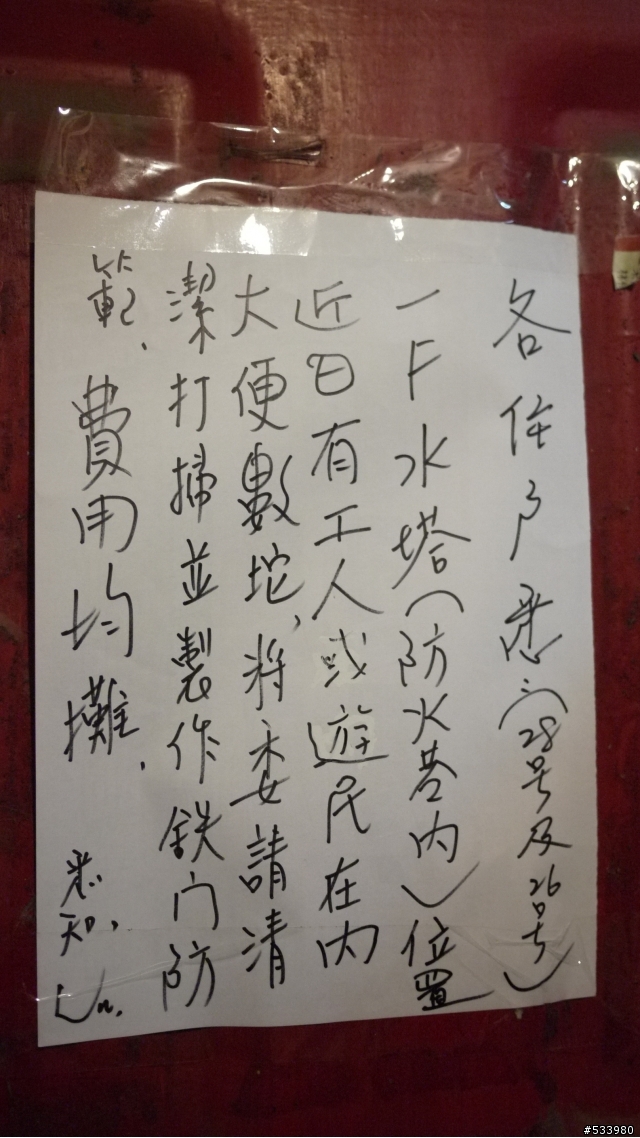 各住戶悉：(28号及26号)
一F水塔(防火巷內)位置
近日有工人或遊民在內
大便數坨，將委請清
潔打掃並製作鉄门防
範、費用均攤．
悉知，
#533980